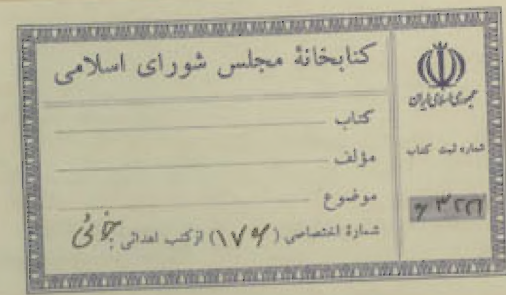 کتابخانهٔ مجلس شورای اسلامی
کتاب
مؤلف
موضوع
شمارهٔ اختصاصی (۱۷۶) از کتب اهدائی
جمهوری اسلامی ایران
شماره ثبت کتاب